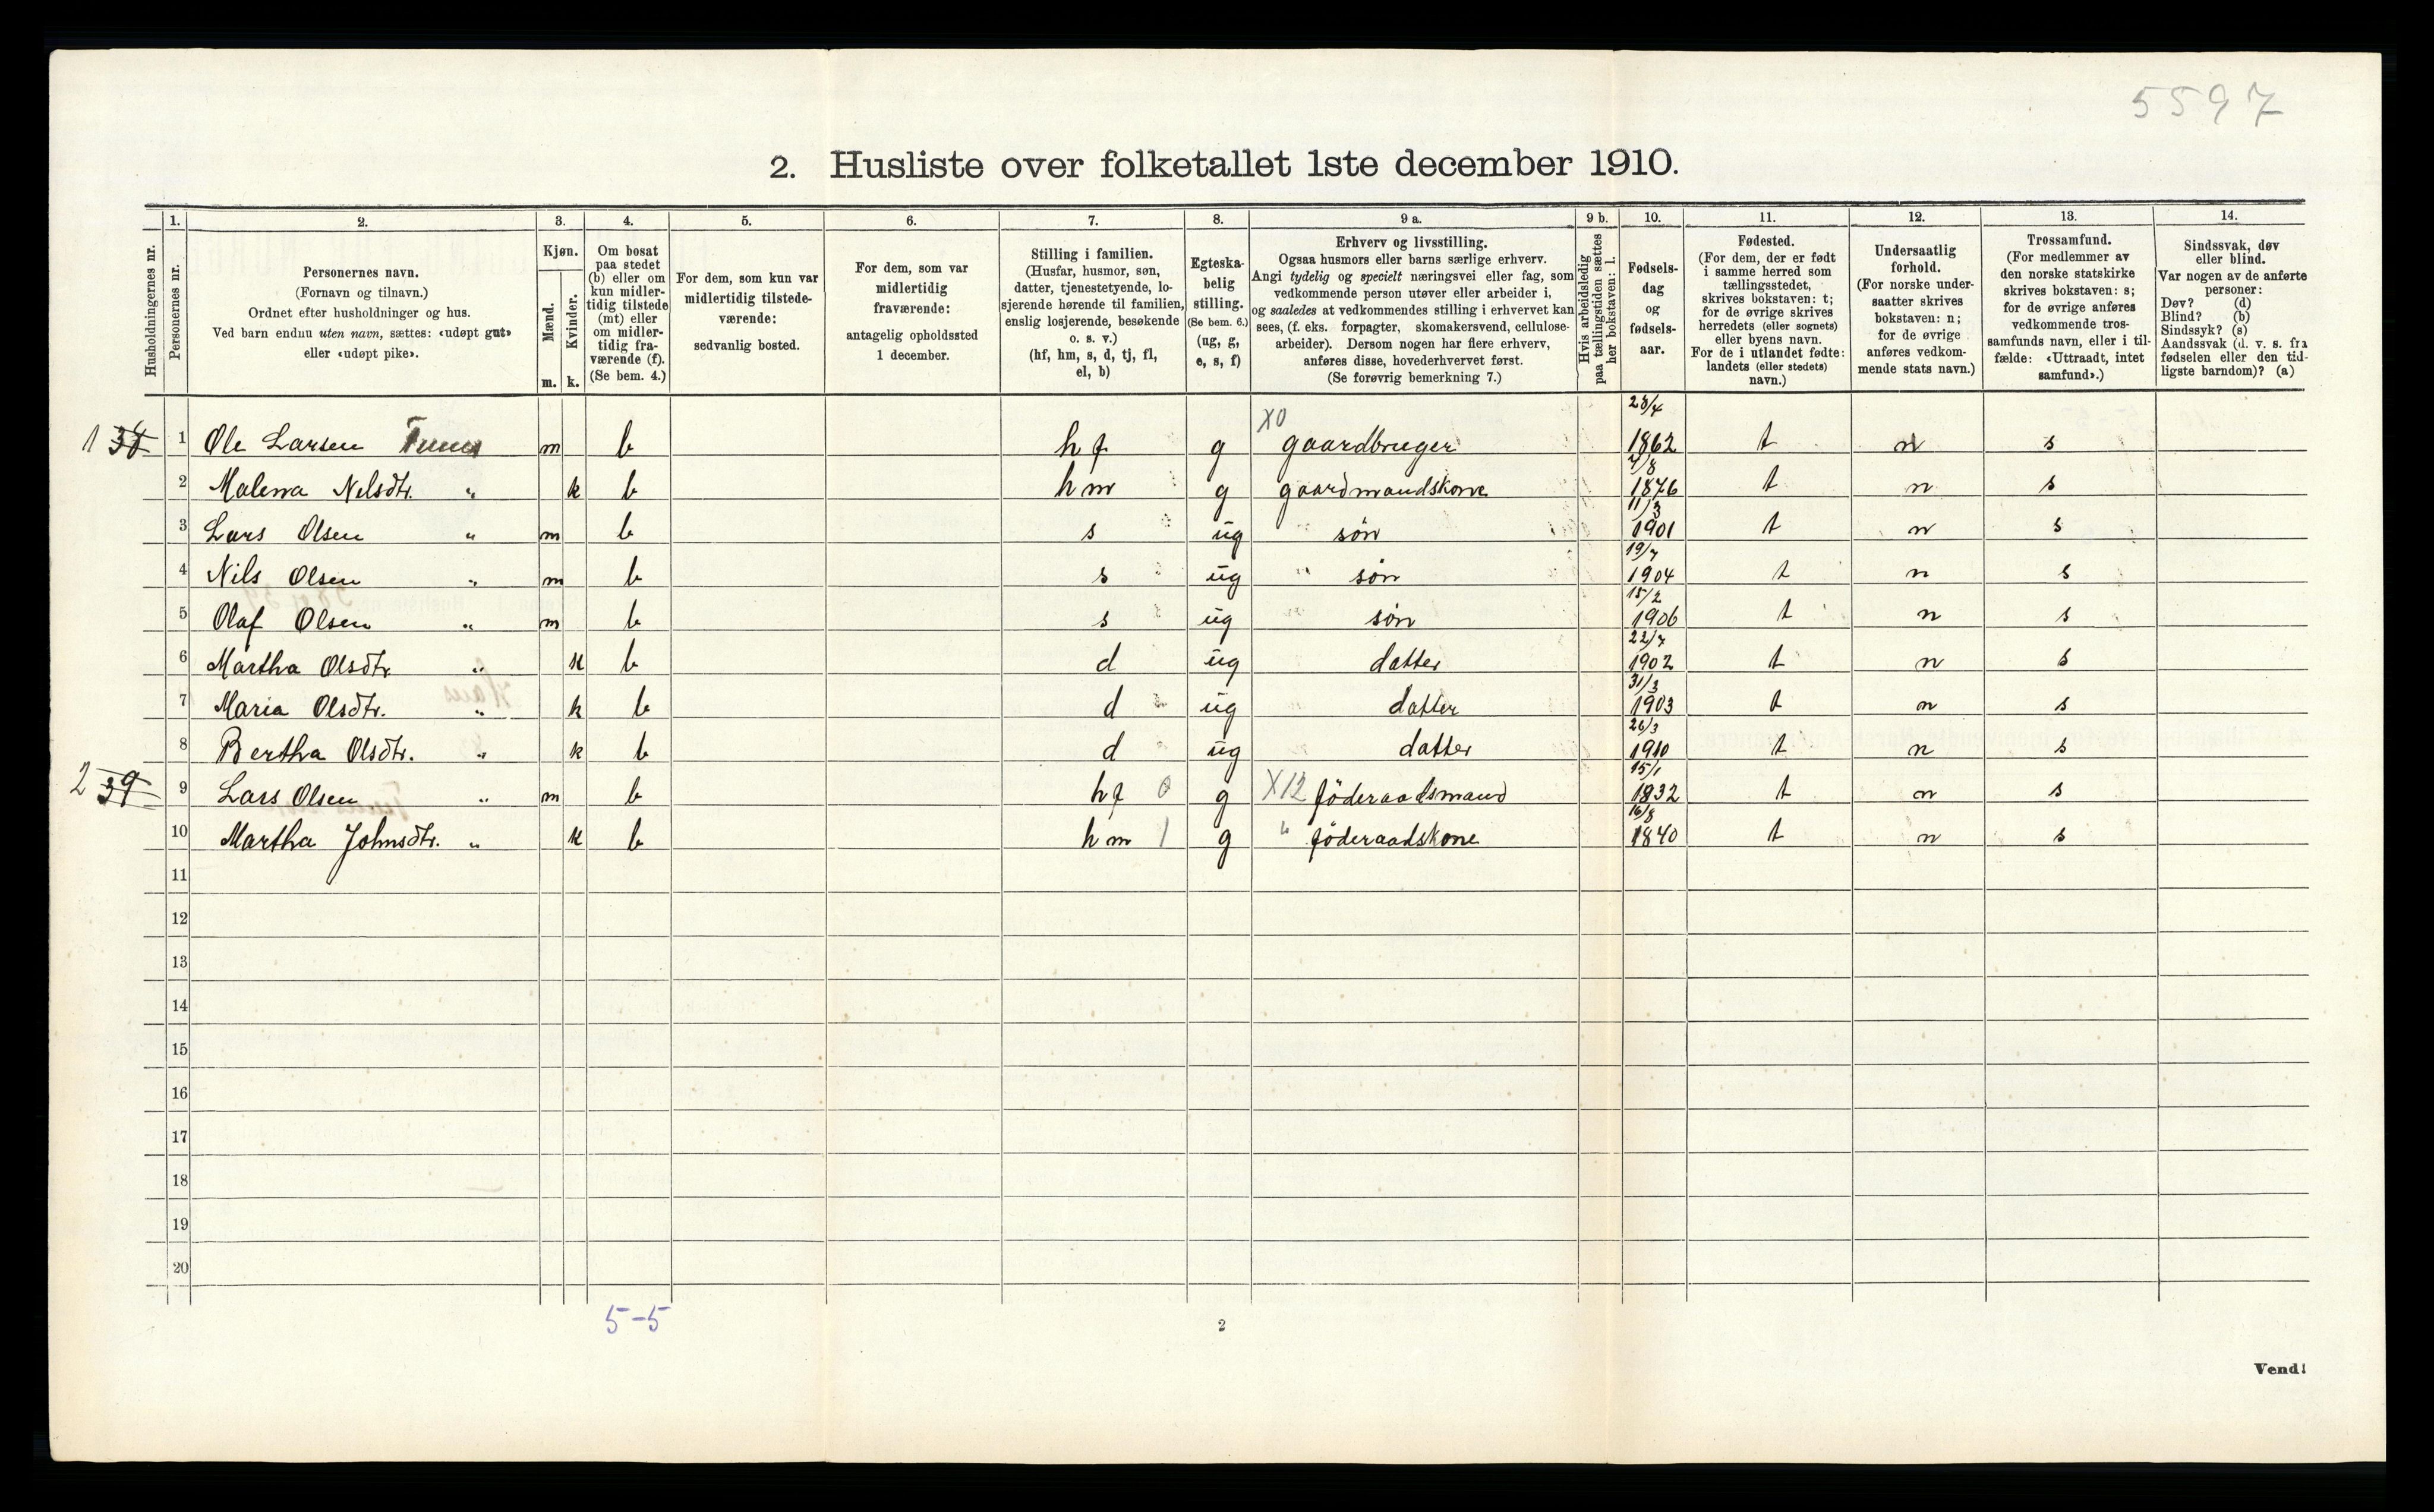 5597
2. Husliste over folketallet 1ste december 1910.
Husholdningernes nr.
1. Personernes nr.
2. Personernes navn. (Fornavn og tilnavn.) Ordnet efter husholdninger og hus. Ved barn endnu uten navn, sættes: «udøpt gut» eller «udøpt pike».
3. Kjøn. Mænd. m. Kvinder. k.
4. Om bosat paa stedet (b) eller om kun midlertidig tilstede (mt) eller om midlertidig fraværende (f). (Se bem. 4.)
5. For dem, som kun var midlertidig tilstedeværende: sedvanlig bosted.
6. For dem, som var midlertidig fraværende: antagelig opholdssted 1 december.
7. Stilling i familien. (Husfar, husmor, søn, datter, tjenestetyende, losjerende hørende til familien, enslig losjerende, besøkende o. s. v.) (hf, hm, s, d, tj, fl, el, b)
8. Egteskabelig stilling. (Se bem. 6.) (ug, g, e, s, f)
9 a. Erhverv og livsstilling. Ogsaa husmors eller barns særlige erhverv. Angi tydelig og specielt næringsvei eller fag, som vedkommende person utøver eller arbeider i, og saaledes at vedkommendes stilling i erhvervet kan sees, (f. eks. forpagter, skomakersvend, cellulosearbeider). Dersom nogen har flere erhverv, anføres disse, hovederhvervet først. (Se forøvrig bemerkning 7.)
9 b. Hvis arbeidsledig paa tællingstiden sættes her bokstaven: l.
10. Fødselsdag og fødselsaar.
11. Fødested. (For dem, der er født i samme herred som tællingsstedet, skrives bokstaven: t; for de øvrige skrives herredets (eller sognets) eller byens navn. For de i utlandet fødte: landets (eller stedets) navn.)
12. Undersaatlig forhold. (For norske undersaatter skrives bokstaven: n; for de øvrige anføres vedkommende stats navn.)
13. Trossamfund. (For medlemmer av den norske statskirke skrives bokstaven: s; for de øvrige anføres vedkommende trossamfunds navn, eller i tilfælde: «Uttraadt, intet samfund».)
14. Sindssvak, døv eller blind. Var nogen av de anførte personer: Døv? (d) Blind? (b) Sindssyk? (s) Aandssvak (d. v. s. fra fødselen eller den tidligste barndom)? (a)
1 38 1 Ole Larsen m b hf g X0 gaardbruger 28/4 1862 t n s
2 Malena Nelsdtr. " k b hm g gaardmandskone 7/8 1876 t n s
3 Lars Olsen " m b s ug " søn 11/3 1901 t n s
4 Nils Olsen " m b s ug " søn 19/7 1904 t n s
5 Olaf Olsen " m b s ug søn 15/2 1906 t n s
6 Martha Olsdtr. " k b d ug datter 22/7 1902 t n s
7 Maria Olsdtr. " k b d ug datter 31/3 1903 t n s
8 Bertha Olsdtr. " k b d ug datter 26/3 1910 t n s
2 39 9 Lars Olsen " m b hf 0 g X12 föderaadsmand 15/1 1832 t n s
10 Martha Johnsdtr. " k b hm 1 g " föderaadskone 16/8 1840 t n s
11
12
13
14
15
16
17
18
19
20
5-5
2
Vend!